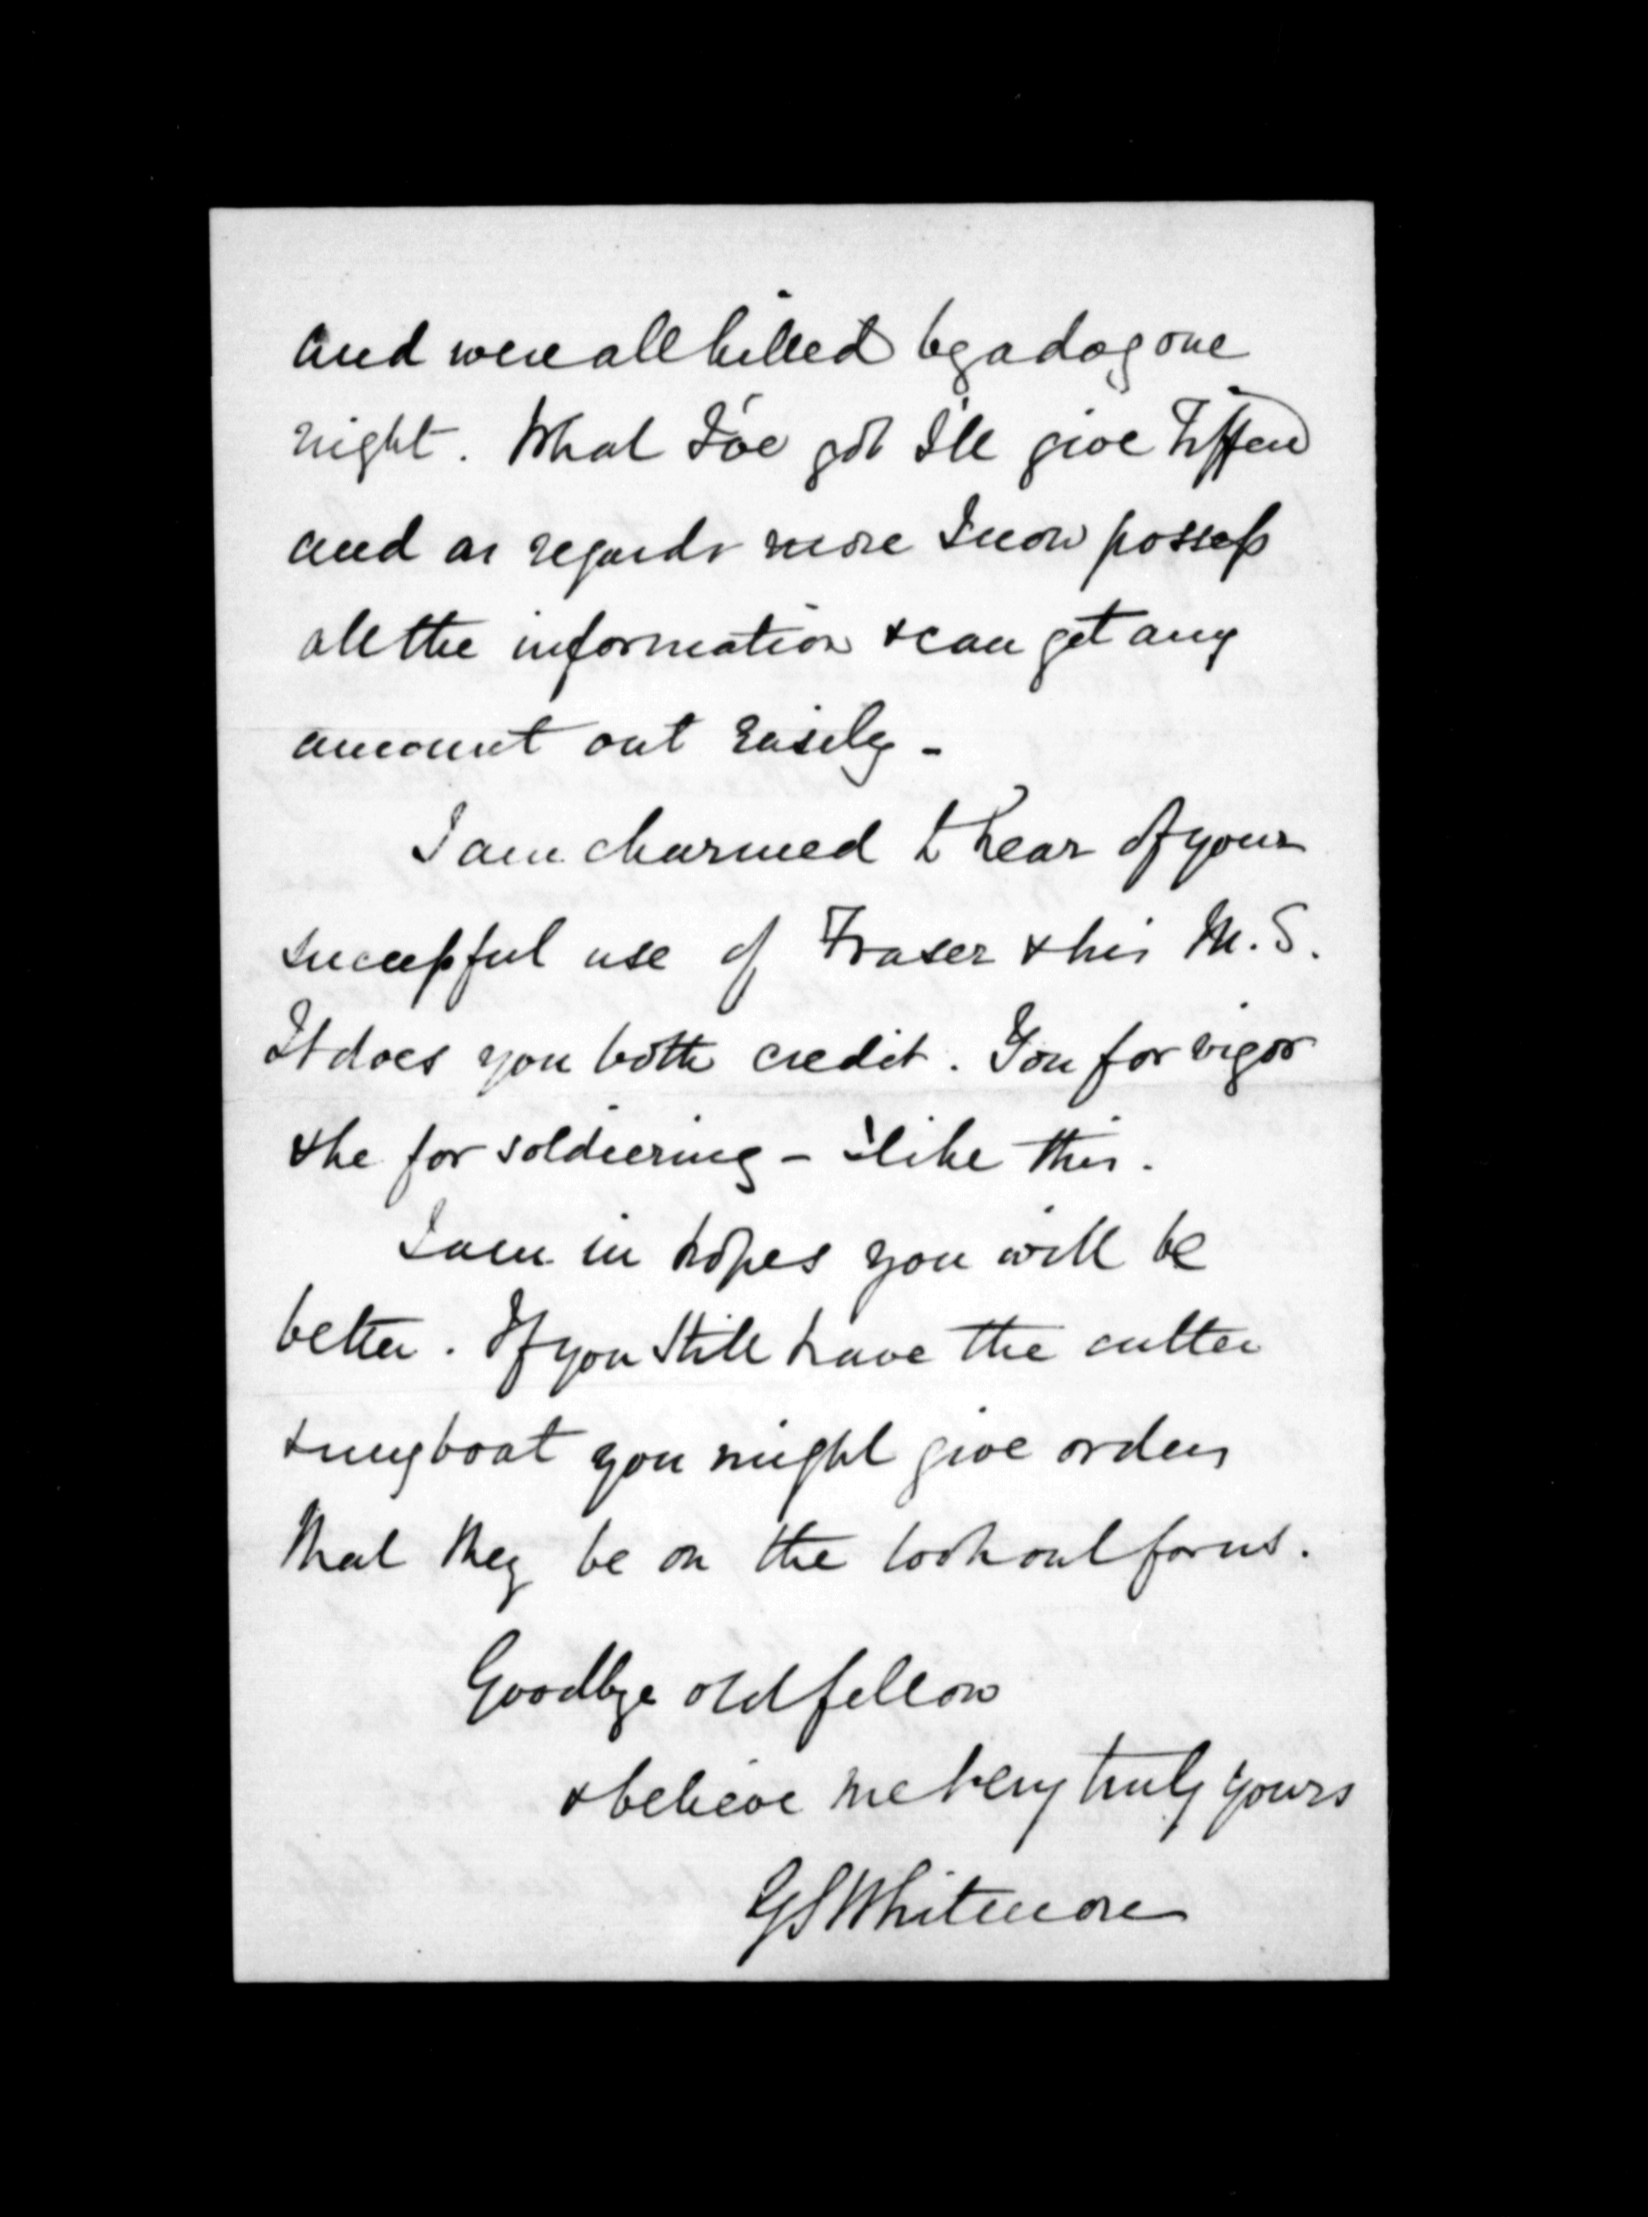 and were all killed by a dog one
night. What I've got I'll give Tiffen
and as regards more I now possess
all the information & can get any
amount out easily -
I am charmed to hear of your
successful use of Fraser & his M.S.
It does you both credit. You for vigor
& he for soldiering - I like this.
I am in hopes you will be
better. If you still have the cutter
& my boat you might give orders
that they be on the look out for us.
Goodbye old fellow
& believe me very truly yours
GSWhitmore